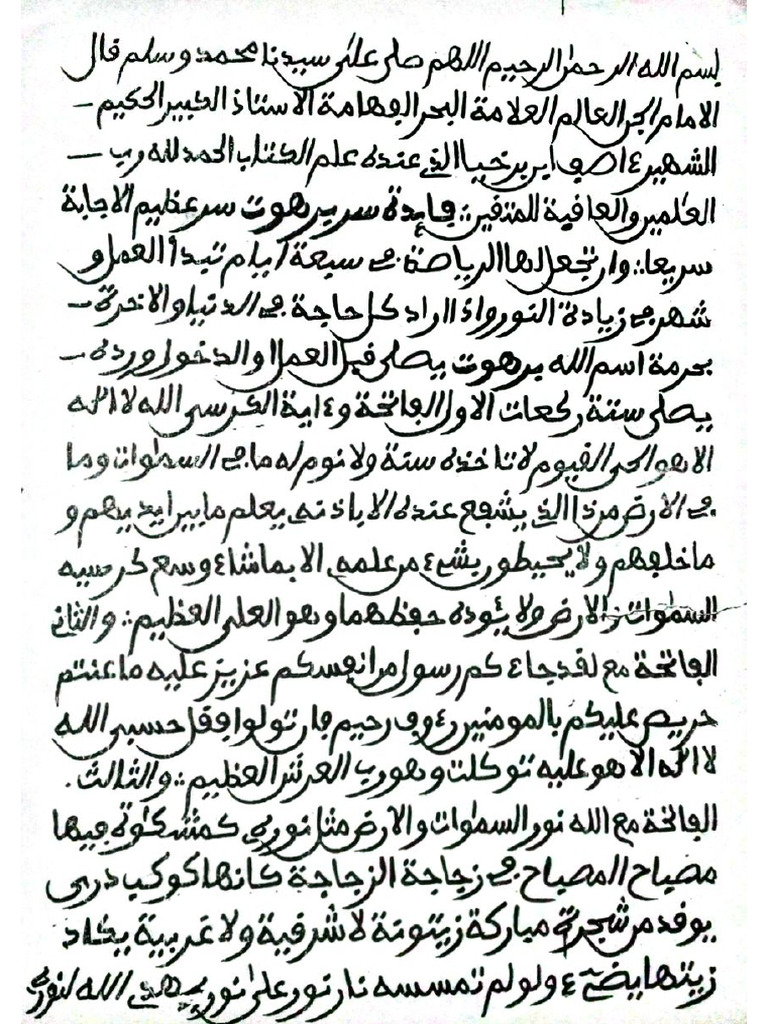 بسم الله الرحمن الرحيم اللهم صلى على سيدنا محمد وسلم قال
الامام الحبر العالم العلامة البحر الفهامة الاستاذ الكبير الحكيم
الشهير ءاصف ابن برخيا الذي عنده علم الكتاب الحمد لله رب
العلمين والعافية للمتقين فايدة سر برهوت سر عظيم الاجابة
سريعا وان تجعل لها الرياضة في سبعة ايام تبدأ العمل و
شهر في زيادة النور واذا اراد كل حاجة في الدنيا والاخرة
بحرمة اسم الله برهوت يصلى قبل العمل والدخول ورده
يصلى ستة ركعات الاول الفاتحة وءاية الكرسى الله لا اله
الا هو الحى القيوم لا تاخذه سنة ولا نوم له ما في السموات وما
في الارض من ذا الذي يشفع عنده الا باذنه يعلم ما بين ايديهم و
ما خلفهم ولا يحيطون بشيء من علمه الا بما شاء وسع كرسيه
السموات والارض ولا يئوده حفظهما وهو العلى العظيم والثانى
الفاتحة مع لقد جاءكم رسول من انفسكم عزيز عليه ما عنتم
حريص عليكم بالمومنين رءوف رحيم فان تولوا فقل حسبى الله
لا اله الا هو عليه توكلت وهو رب العرش العظيم والثالث.
الفاتحة مع الله نور السموات والارض مثل نوره كمشكوة فيها
مصباح المصباح في زجاجة الزجاجة كانها كوكب درى
يوقد من شجرة مباركة زيتونة لا شرقية ولا غربية يكاد
زيتها يضيء ولو لم تمسسه نار نور على نور يهدي الله لنوره